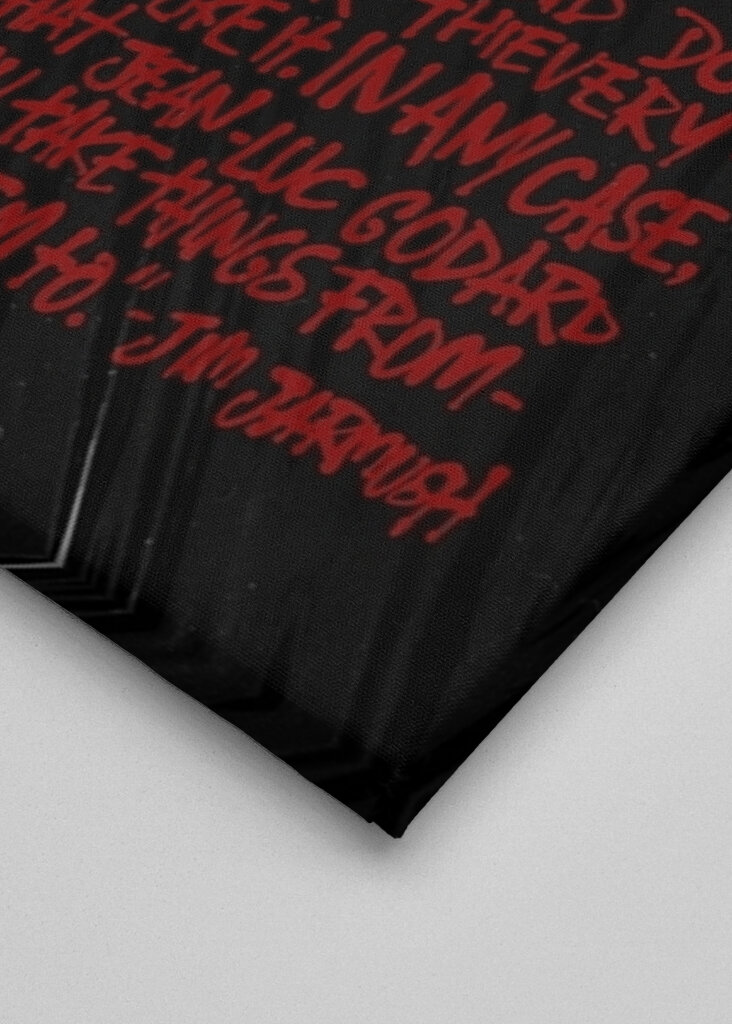 ND DO
THIEVERY
KE IT. IN ANY CASE,
HAT JEAN-LUC GODARD
U TAKE THINGS FROM-
EM TO." -JIM JARMUSH